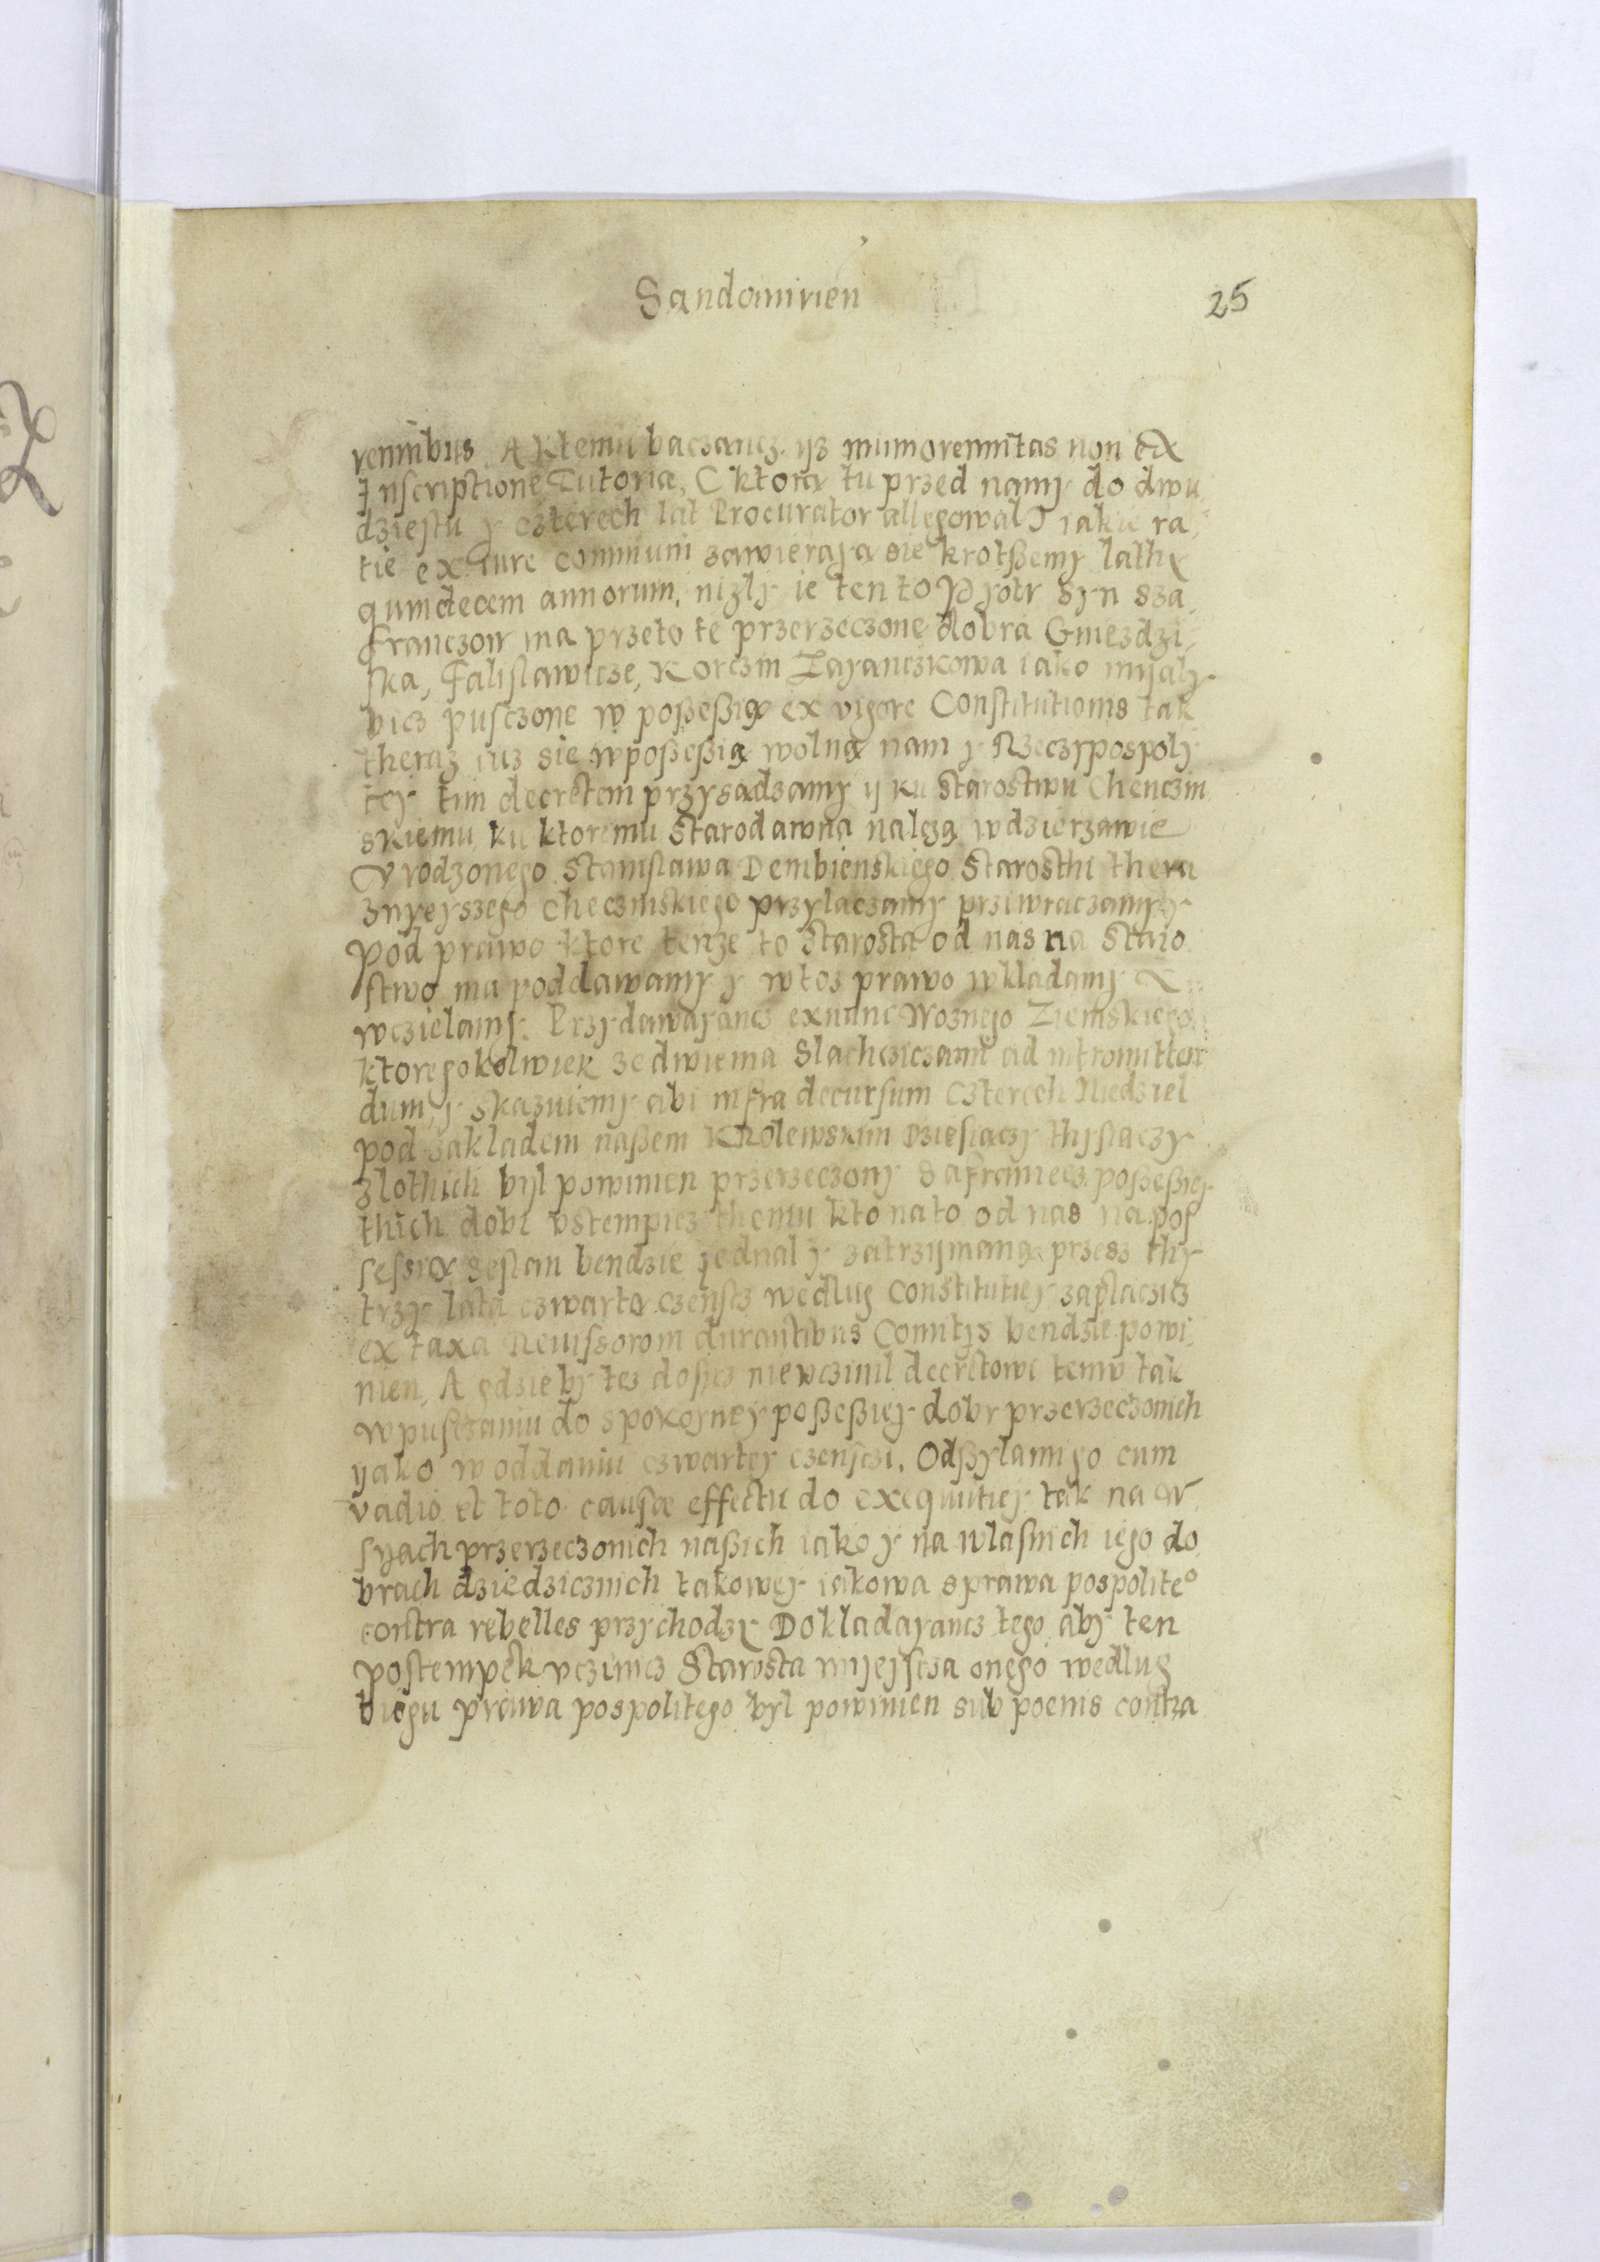 Sandomirien
25
rennibus. A ktemu baczancz ysz minorennitas non ex
Inscriptione Tutoria, (ktorą tu przed namy do dwu
dziestu y czterech lat Procurator allegowal) iakie ra,
tie ex iure communi zawieraya sie krotßemy lathy
quindecem annorum, nizly ie ten to Pyotr syn sza,
franczow ma przeto te przerzeczone dobra Gniezdzi,
ska, Falislawicze, Korczin Zayanczkowa iako myaly
bicz pusczone w poßeßią ex vigore Constitutionis tak
theraz iuz sie w poßeßią wolną nam y Rzeczypospoly
tey tim decretem przysadzamy y ku Starostwu Chenczin
skiemu, ku ktoremu Starodawna należą w dzierzawie
Vrodzonego Stanislawa Dembienskiego Starosthi thera
znyeyszego Checzinskiego przylaczamy przywraczamy y
pod prawo ktore tenze to Starosta od nas na Staro
stwo ma poddawamy y w tos prawo wkladamy
wczielamy. Przydawayancz exnunc Woznego Ziemskiego
ktoregokolwiek ze dwiema Slachcziczami ad intromitten
dum, y skazuiemy abi infra decursum Czterech Niedziel
pod zakladem naßem Krolewskim Dziesiaczy thysiaczy
zlothich byl powinien przerzeczony Safraniecz poßeßiey
thich dobr vstempicz themu kto na to od nas na pos
sessią seslan bendzie jednal y zatrzijmaną przesz thy
trzy lata czwartą czenscz według Constitutiey zaplaczicz
ex taxa Reuissorow durantibus Comitijs bendzie powi,
nien, A gdzie by tez dosicz nie vczinil decretowi temu tak
w pusczaniu do spokoyney poßeßiey dobr przerzeczonich
yako w oddaniu czwartey czensczi, Odßylami go cum
vadio et toto causæ effectu do exequutiey tak na W
syach przerzeczonich naßich iako y na wlasnich iego do
brach dziedzicznich takowey iakowa sprawa pospolite°
contra rebelles przychodzy Dokladayancz tego, aby ten
postempek vczinicz Starosta myejscza onego według
biegu prawa pospolitego byl powinien sub poenis contra